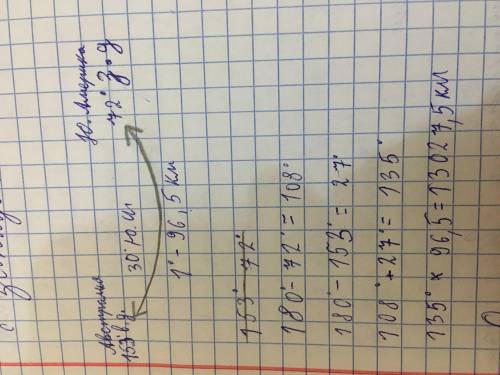 Австралия
153° в.д.
30° ю.ш
Ю. Америка
72° з.д
1° - 96,5 км
153° - 72°
180° - 72° = 108°
180° - 153° = 27°
108° + 27° = 135°
135° × 96,5 = 13027,5 км